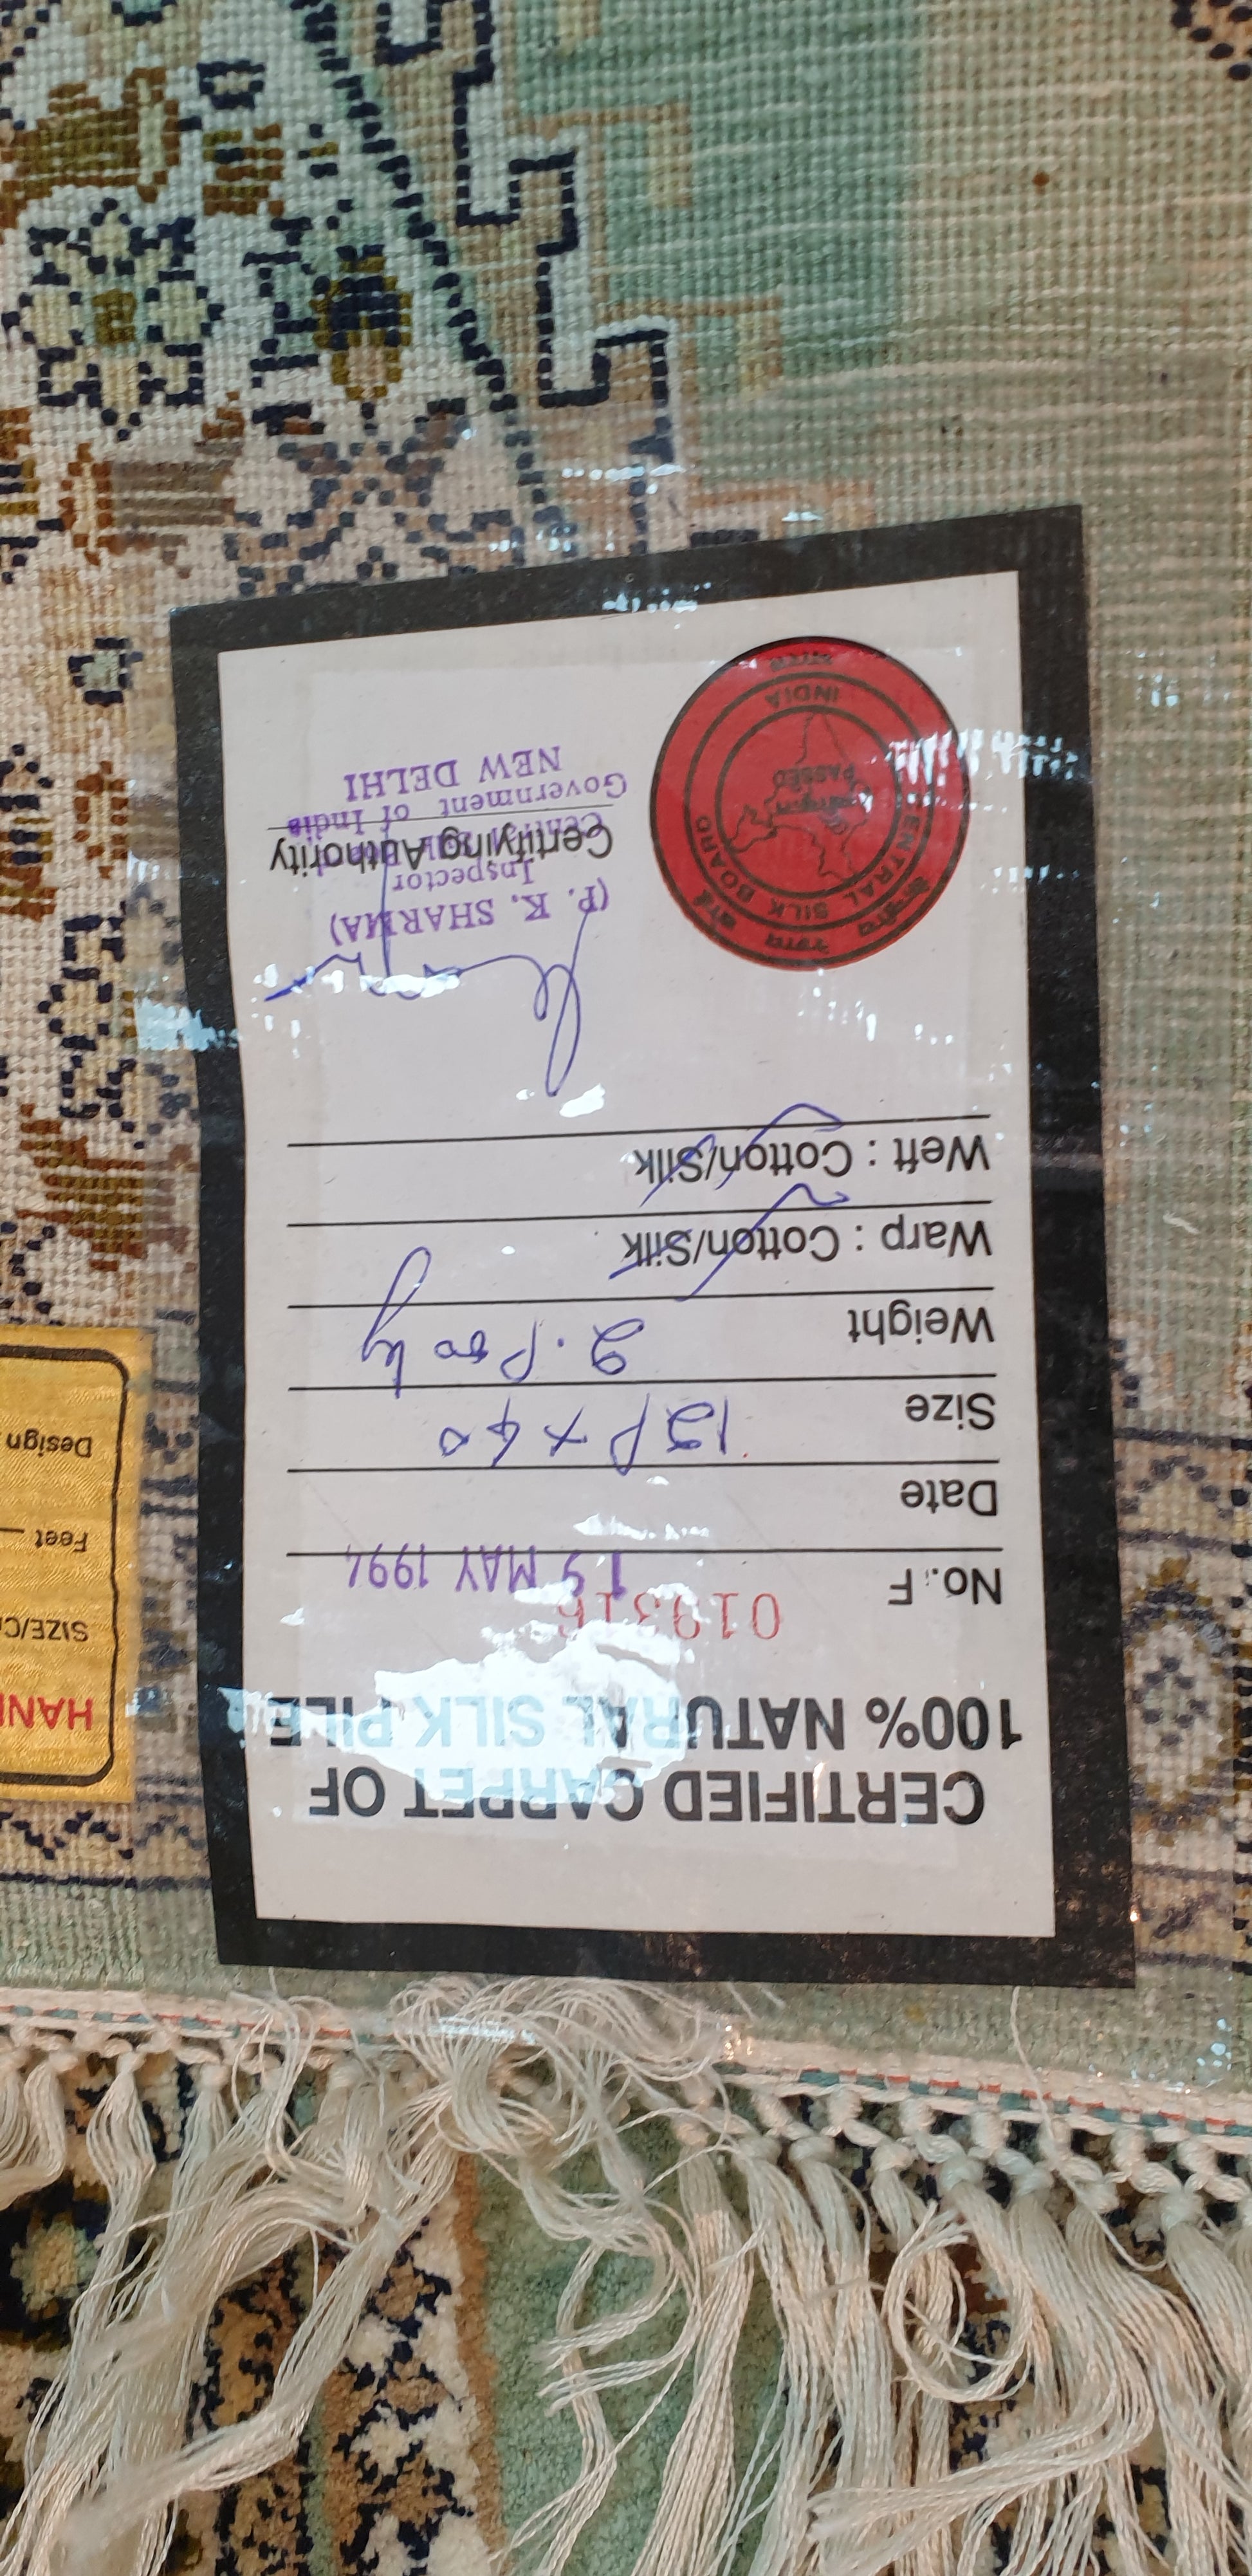 CERTIFIED CARPET OF
100% NATURAL SILK PILE
No. F 019316
19 MAY 1994
Date
Size
Weight
Warp : Cotton/Silk
Weft : Cotton/Silk
(P. K. SHARMA)
Inspector
Certifying Authority
Central Silk Board
Government of India
NEW DELHI
CENTRAL SILK BOARD
INDIA
PASSED
भारत
SIZE/
Feet
Design